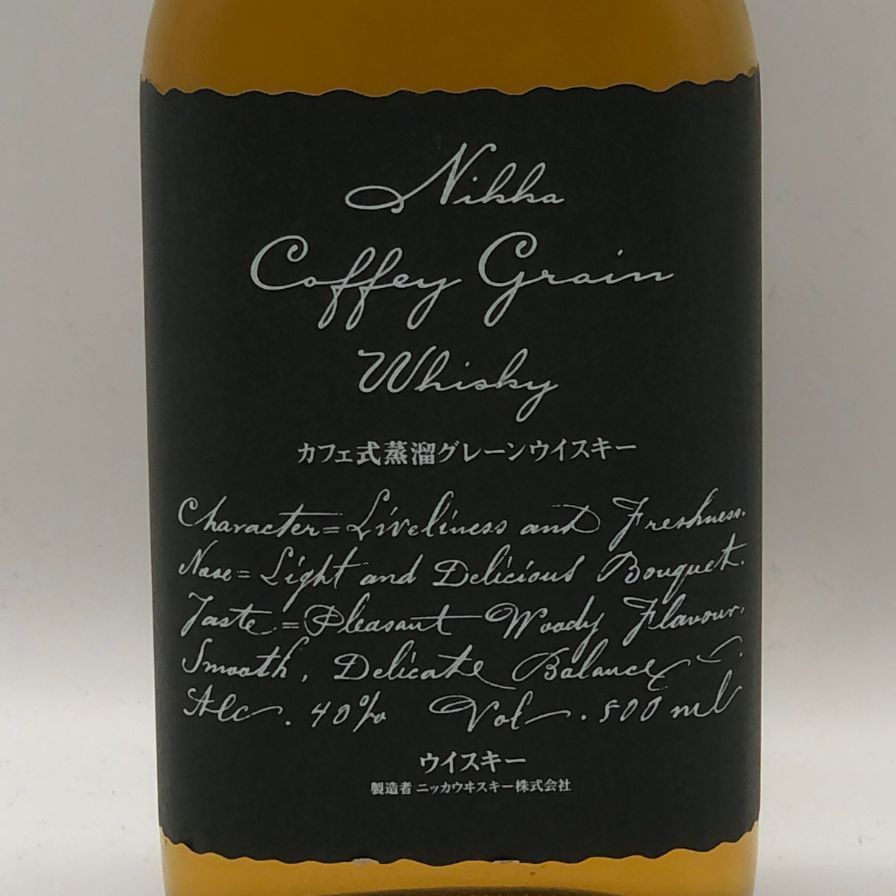 Nikka
Coffey Grain
Whisky
カフェ式蒸溜グレーンウイスキー
Character=Liveliness and Freshness.
Nose=Light and Delicious Bouquet.
Taste=Pleasant Woody Flavour.
Smooth, Delicate Balance.
Alc. 40% Vol. 500ml
ウイスキー
製造者 ニッカウヰスキー株式会社